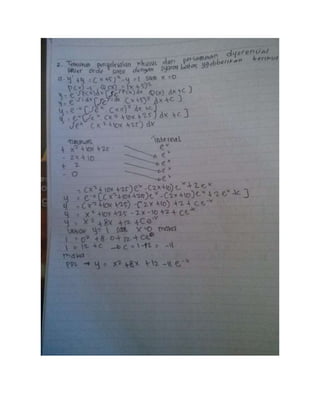 2. Tentukan penyelesaian khusus dari persamaan diferensial
linier orde satu dengan syarat batas yg diberikan berikut
a. y' + y = (x+5)², y = 1 saat x = 0
y = e⁻ˣ [∫eˣ (x+5)² dx + c]
y = e⁻ˣ [∫eˣ (x² + 10x + 25) dx + c]
∫eˣ (x² + 10x + 25) dx
Turunan Integral
+ x² + 10x + 25 eˣ
- 2x + 10 eˣ
+ 2 eˣ
- 0 eˣ
= (x² + 10x + 25) eˣ - (2x + 10) eˣ + 2eˣ
y = e⁻ˣ [(x² + 10x + 25) eˣ - (2x + 10) eˣ + 2eˣ + c]
y = (x² + 10x + 25) - (2x + 10) + 2 + ce⁻ˣ
y = x² + 10x + 25 - 2x - 10 + 2 + ce⁻ˣ
y = x² + 8x + 12 + ce⁻ˣ
untuk y = 1 saat x = 0 maka
1 = 0² + 8.0 + 12 + ce⁰
1 = 12 + c → c = 1 - 12 = -11
maka
→ y = x² + 8x + 12 - 11 e⁻ˣ